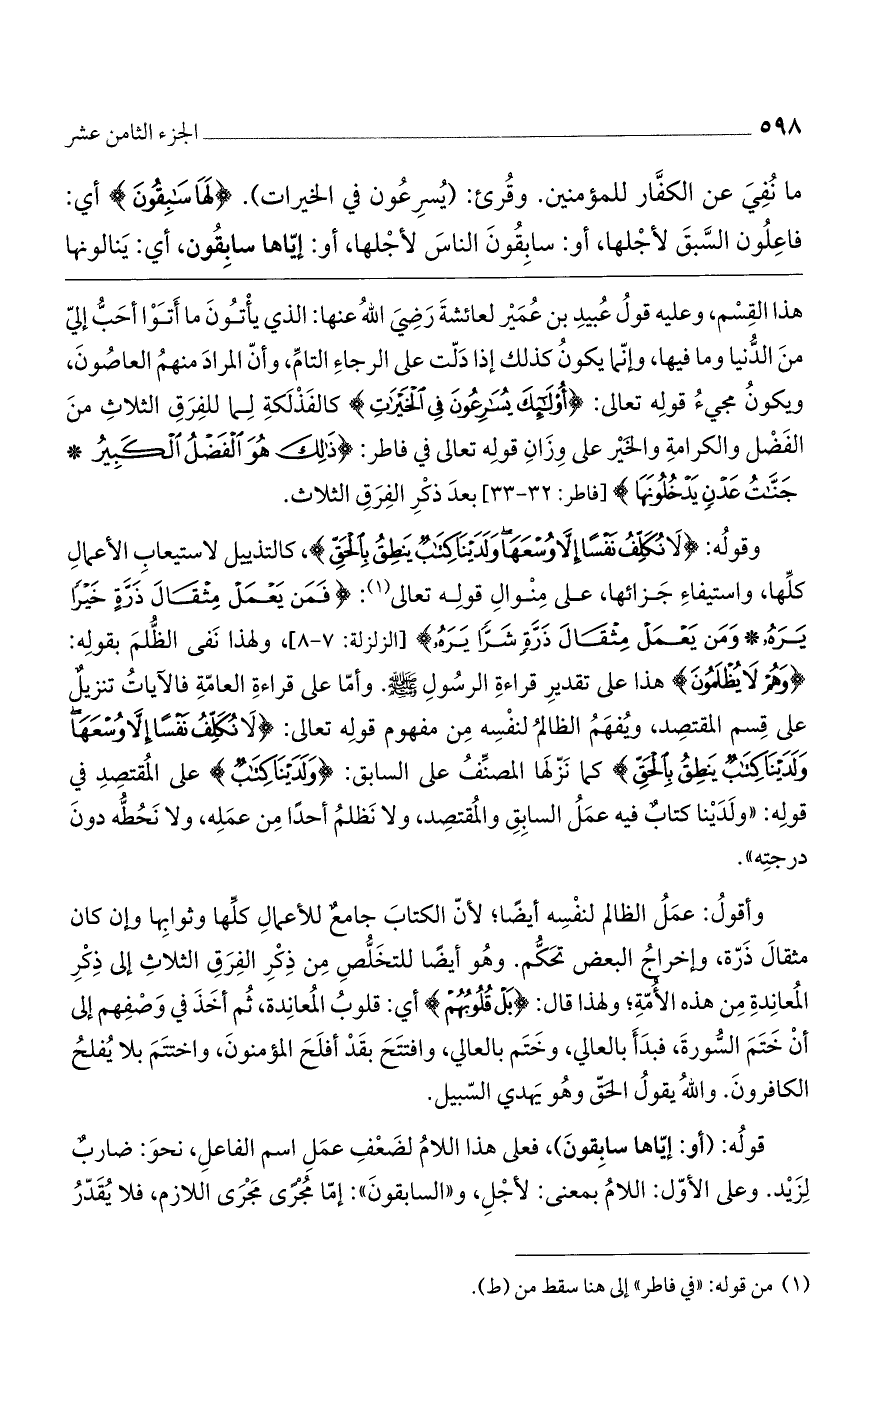 ٥٩٨ الجزء الثامن عشر
ما نُفِيَ عن الكفَّار للمؤمنين. وقُرئ: (يُسرِعُون في الخيرات). ﴿لَهَا سَٰبِقُونَ﴾ أي:
فاعِلُون السَّبقَ لأجْلها، أو: سابِقُونَ الناسَ لأجلها، أو: إيّاها سابِقُون، أي: يَنالونها
هذا القِسْم، وعليه قولُ عُبيدِ بن عُمَيْر لعائشةَ رَضِيَ اللهُ عنها: الذي يأْتُونَ ما أَتَوْا أحَبُّ إليّ
منَ الدُّنيا وما فيها، وإنّما يكونُ كذلك إذا دَلّت على الرجاءِ التامِّ، وأنّ المرادَ منهمُ العاصُونَ،
ويكونُ مجيءُ قولِه تعالى: ﴿أُوْلَٰٓئِكَ يُسَٰرِعُونَ فِي ٱلْخَيْرَٰتِ﴾ كالفَذْلَكةِ لِما للفِرَقِ الثلاثِ منَ
الفَضْل والكرامةِ والخَيْر على وِزَانِ قولِه تعالى في فاطر: ﴿ذَٰلِكَ هُوَ ٱلْفَضْلُ ٱلْكَبِيرُ *
جَنَّٰتُ عَدْنٍ يَدْخُلُونَهَا﴾ [فاطر: ٣٢-٣٣] بعدَ ذكْرِ الفِرَقِ الثلاث.
وقولُه: ﴿لَا نُكَلِّفُ نَفْسًا إِلَّا وُسْعَهَا ۖ وَلَدَيْنَا كِتَٰبٌ يَنطِقُ بِٱلْحَقِّ﴾، كالتذييلِ لاستيعابِ الأعمالِ
كلِّها، واستيفاءِ جَزائها، على مِنْوالِ قولِه تعالى(١): ﴿فَمَن يَعْمَلْ مِثْقَالَ ذَرَّةٍ خَيْرًا
يَرَهُۥ * وَمَن يَعْمَلْ مِثْقَالَ ذَرَّةٍ شَرًّا يَرَهُۥ﴾ [الزلزلة: ٧-٨]، ولهذا نَفى الظُّلمَ بقولِه:
﴿وَهُمْ لَا يُظْلَمُونَ﴾ هذا على تقديرِ قراءةِ الرسُولِ ﷺ. وأمّا على قراءةِ العامّةِ فالآياتُ تنزيلٌ
على قِسم المقتصِد، ويُفهَمُ الظالمُ لنفْسِه مِن مفهوم قولِه تعالى: ﴿لَا نُكَلِّفُ نَفْسًا إِلَّا وُسْعَهَا ۖ
وَلَدَيْنَا كِتَٰبٌ يَنطِقُ بِٱلْحَقِّ﴾ كما نَزّلها المصنِّفُ على السابق: ﴿وَلَدَيْنَا كِتَٰبٌ﴾ على المُقتصِدِ في
قولِه: «ولَدَيْنا كتابٌ فيه عمَلُ السابِقِ والمُقتصِد، ولا نَظلمُ أحدًا مِن عمَلِه، ولا نَحُطُّه دونَ
درجتِه».
وأقولُ: عمَلُ الظالمِ لنفْسِه أيضًا؛ لأنّ الكتابَ جامعٌ للأعمالِ كلِّها وثوابِها وإن كان
مثقالَ ذَرّة، وإخراجُ البعض تحَكُّم. وهو أيضًا للتخَلُّصِ مِن ذِكْرِ الفِرَقِ الثلاثِ إلى ذِكْرِ
المُعانِدةِ مِن هذه الأُمّةِ؛ ولهذا قال: ﴿بَلْ قُلُوبُهُمْ﴾ أي: قلوبُ المُعانِدة، ثُم أخَذَ في وَصْفِهم إلى
أنْ خَتَمَ السُّورةَ، فبدَأَ بالعالي، وخَتَم بالعالي، وافتتَحَ بقَدْ أفلَحَ المؤمنونَ، واختتَمَ بلا يُفلحُ
الكافرونَ. واللهُ يقولُ الحَقّ وهُو يَهدي السّبيل.
قولُه: (أو: إيّاها سابِقونَ)، فعلى هذا اللامُ لضَعْفِ عمَلِ اسم الفاعلِ، نحوَ: ضاربٌ
لِزَيْد. وعلى الأوّل: اللامُ بمعنى: لأجْلِ، و«السابقونَ»: إمّا مُجُرًى مَجْرَى اللازم، فلا يُقَدّرُ
(١) من قوله: «في فاطر» إلى هنا سقط من (ط).